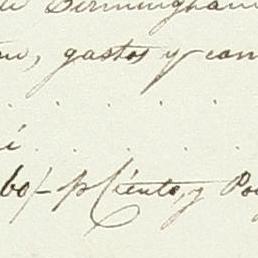 de Birmingham
, gastos y com
60/- p Ciento, y Po